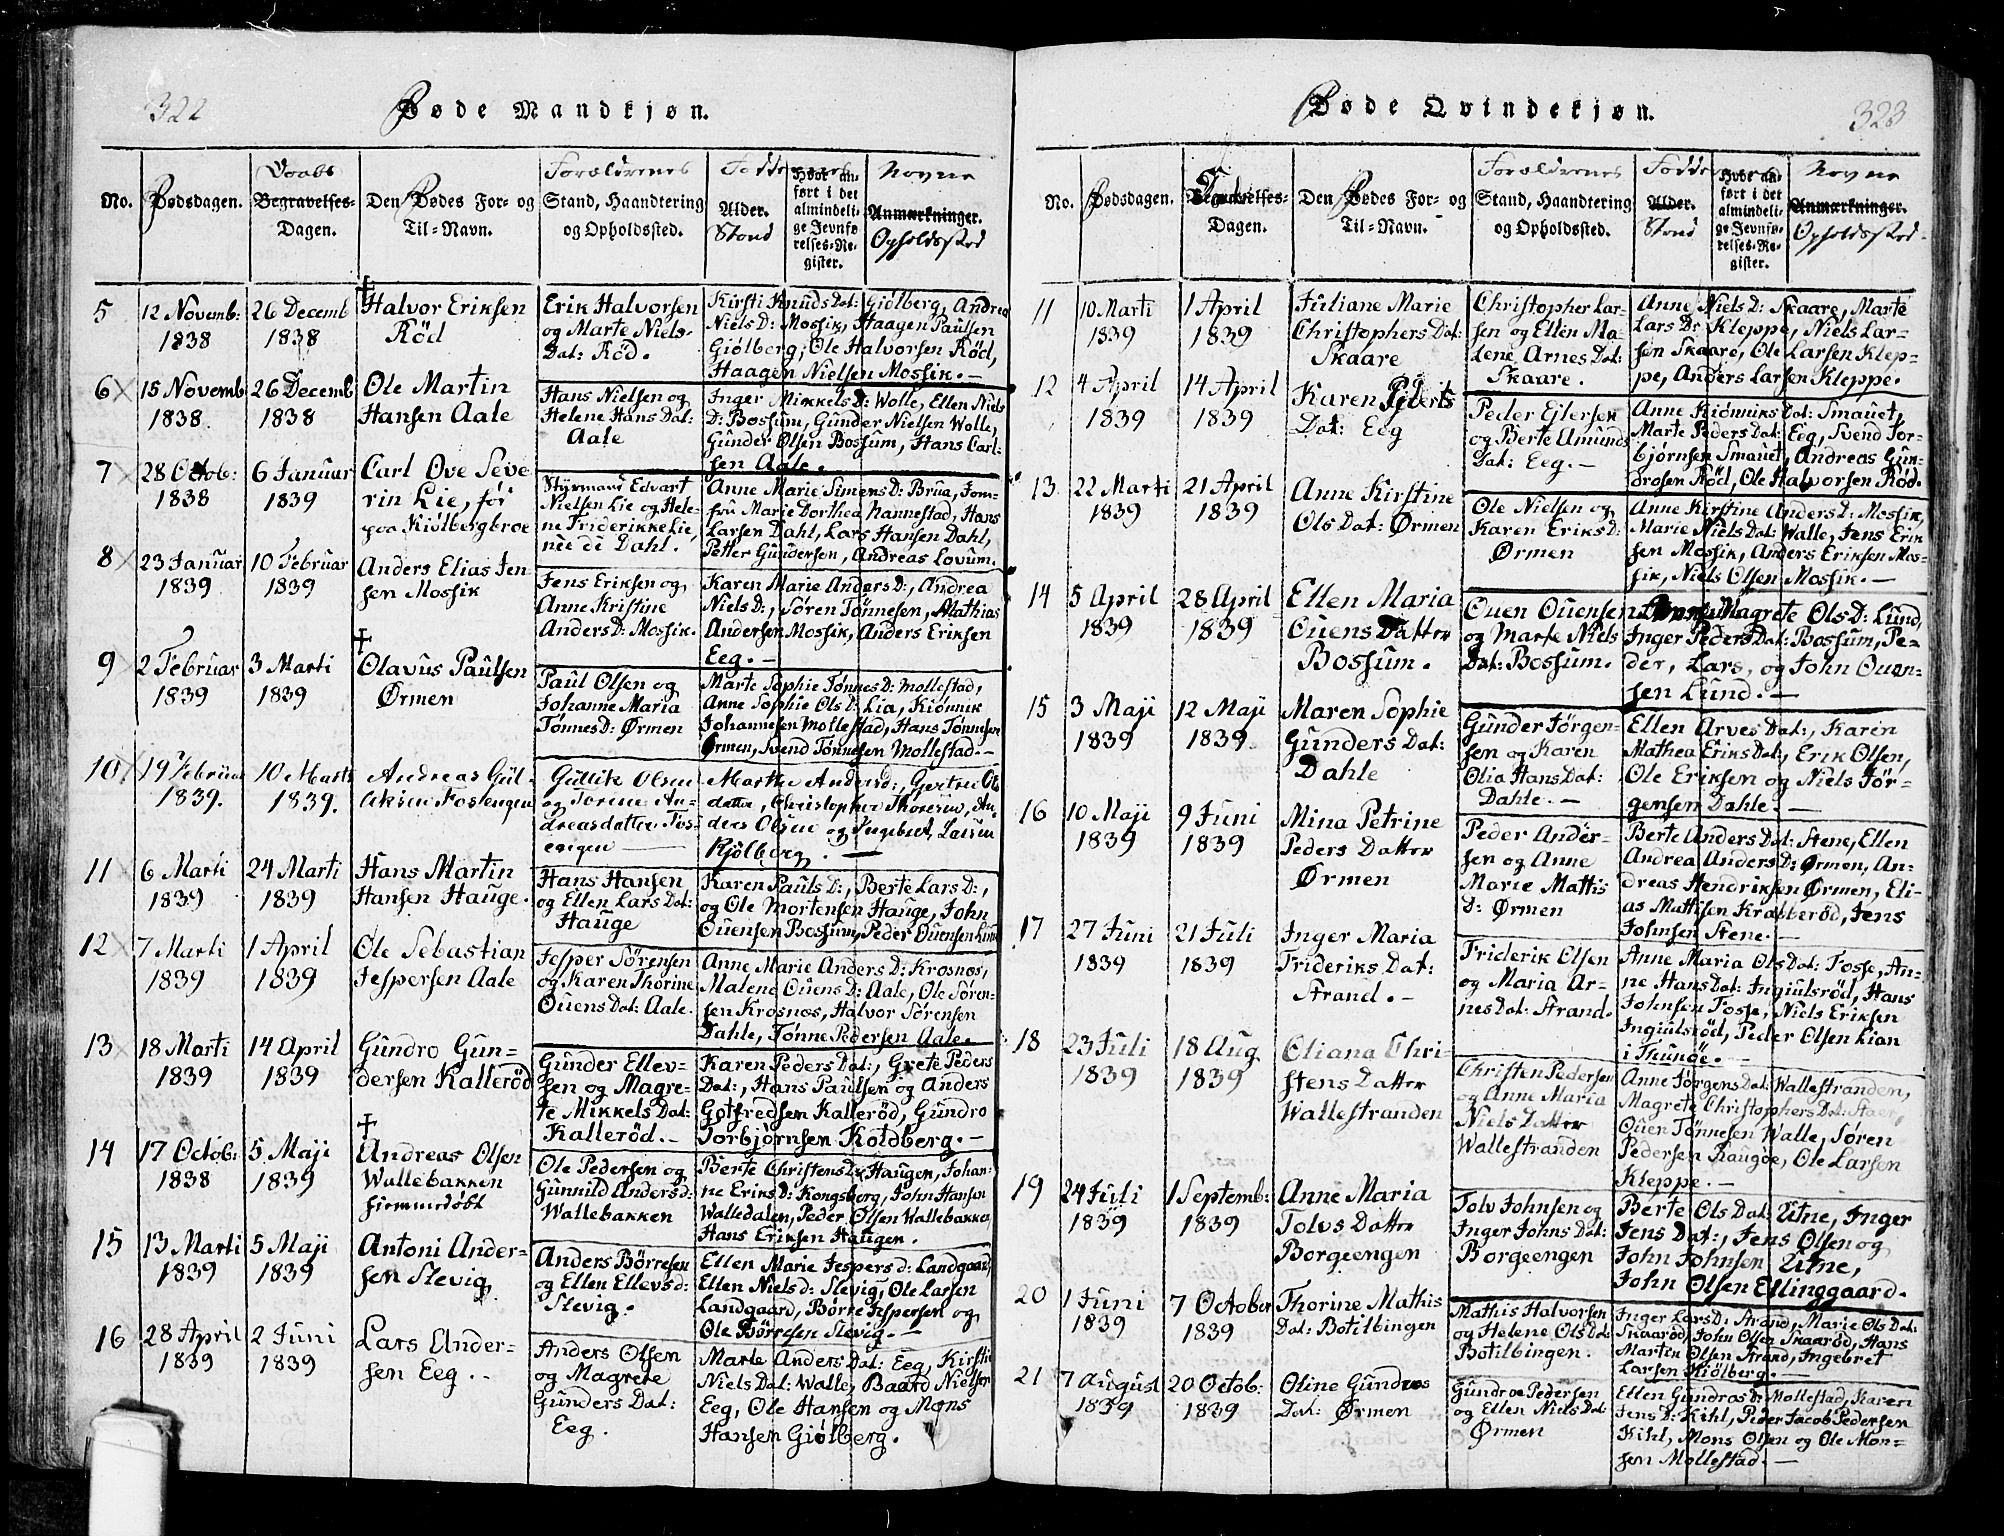 322
Døde Mandkjøn.
No.
Dødsdagen.
Daabs
Begravelses-
Dagen.
Den Dødes For- og
Til-Navn.
Forældrenes
Stand, Haandtering
og Opholdssted.
Fadder
Alder.
Stand
Hvor an-
ført i det
almindeli-
ge Jevnfø-
relses-Re-
gister.
Navne
Anmærkninger.
Opholdssted
5
12 Novemb:
1838
26 Decemb
1838
Halvor Eriksen
Röd
Erik Halvorsen
og Marte Niels-
Dat: Röd.
Kirsti Knuds Dat: Giölberg, Andrea
Niels D: Mossik, Haagen Paulsen
Giölberg, Ole Halvorsen Röd,
Haagen Nielsen Mossik. —
6
15 Novemb
1838
26 Decemb
1838
Ole Martin
Hansen Aale
Hans Nielsen og
Helene Hans Dat:
Aale
Inger Mikkels D: Wolle, Ellen Niels
D: Bossum, Gunder Nielsen Wolle,
Gunder Olsen Bossum, Hans Carl-
sen Aale.
7
28 Octob:
1838
6 Januar
1839
Carl Ove Seve
rin Lie, før
paa Kiölbergbroe
Styrmand Edvart
Nielsen Lie og Hele-
ne Friderikke Lie,
née de Dahl.
Anne Marie Simens D: Brua, Jom-
fru Marie Dorthea Nannestad, Hans
Larsen Dahl, Lars Hansen Dahl,
Petter Gundersen, Andreas Lovum.
8
23 Januar
1839
10 Februar
1839
Anders Elias Jen
sen Mossik
Jens Eriksen og
Anne Kristine
Anders D: Mossik.
Karen Marie Anders D:, Andrea
Niels D:, Sören Tønnesen, Mathias
Andersen Mossik, Anders Eriksen
Eeg. —
9
2 Februar
1839
3 Marti
1839
Olavus Paulsen
Ørmen
Paul Olsen og
Johanne Maria
Tønnes D: Ørmen
Marte Sophie Tønnes D: Mollestad,
Anne Sophie Ols D: Lia, Kiönnik
Johannesen Mollestad, Hans Tønnesen
Ørmen, Svend Tønnesen Mollestad. —
10
19 Februar
1839.
10 Marti
1839.
Andreas Gul-
liksen Fosengen
Gullik Olsen
og Torine An-
dreasdatter Fos-
engen
Marthe Andersd:, Gertrue Ols
datter, Christopher Thoresen, An-
ders Olsen og Ingebret Larsen
Kjölberg. —
11
6 Marti
1839
24 Marti
1839
Hans Martin
Hansen Hauge.
Hans Hansen
og Ellen Lars Dat:
Hauge
Karen Pauls D:, Berte Lars D:,
og Ole Mortensen Hauge, John
Ouensen Bossum, Peder Ouensen Lund
12
7 Marti
1839
1 April
1839
Ole Sebastian
Jespersen Aale
Jesper Sörensen
og Karen Thorine
Ouens Dat: Aale.
Anne Marie Anders D: Krosnos,
Malene Ouens D: Aale, Ole Sören-
sen Krosnos, Halvor Sörensen
Dahle, Tønne Pedersen Aale.
13
18 Marti
1839
14 April
1839
Gundro Gun-
dersen Kalleröd
Gunder Ellev-
sen og Magre-
te Mikkels Dat:
Kalleröd. —
Karen Peders Dat:, Grete Peders
Dat:, Hans Paulsen og Anders
Gotfredsen Kalleröd, Gundro
Torbjörnsen Koldberg. —
14
17 Octob:
1838
5 Maji
1839
Andreas Olsen
Wallebakken
hjemmedøbt
Ole Pedersen og
Gunnild Anders d:
Wallebakken
Berte Christens D: Haugen, Johan-
ne Eriks D: Kongsberg, John Hansen
Walledalen, Peder Olsen Wallebakken,
Hans Eriksen Haugen.
15
13 Marti
1839
5 Maji
1839
Antoni Ander-
sen Slevig
Anders Börresen
og Ellen Ellevs d:
Slevig.
Ellen Marie Jespers d: Landgaard,
Ellen Niels d: Slevig, Ole Larsen
Landgaard, Börre Jespersen og
Ole Börresen Slevig. —
16
28 April
1839
2 Juni
1839
Lars Ander-
sen Eeg.
Anders Olsen
og Magrete
Gunders Dat:
Eeg.
Marte Anders Dat: Eeg, Kirsti
Niels Dat: Walle, Baard Nielsen
Eeg, Ole Hansen og Mons
Hansen Giölberg.
Døde Qvindekjøn.
323
No.
Dødsdagen.
Begravelses-
Dagen.
Den Dødes For- og
Til-Navn.
Forældrenes
Stand, Haandtering
og Opholdssted.
Fadder
Alder.
Stand
Hvor an-
ført i det
almindeli-
ge Jevnfø-
relses-Re-
gister.
Navne
Anmærkninger.
Opholdssted.
11
10 Marti
1839
1 April
1839
Juliane Marie
Christophers Dat:
Skaare
Christopher Lar-
sen og Ellen Ma-
lene Arnes Dat:
Skaare.
Anne Niels D: Skaare, Marte
Lars D: Kleppe, Niels Lar-
sen Skaare, Ole Larsen Klep-
pe, Anders Larsen Kleppe.
12
4 April
1839
14 April
1839
Karen Peders
Dat: Eeg
Peder Ejlersen
og Berte Amunds
Dat: Eeg. —
Anne Kiönniks Dat: Smauet,
Marte Peders Dat: Eeg, Svend Tor-
bjørnsen Smauet, Andreas Gun-
drosen Röd, Ole Halvorsen Röd.
13
22 Marti
1839
21 April
1839
Anne Kirstine
Ols Dat: Ørmen
Ole Nielsen og
Karen Eriks D:
Ørmen
Anne Kirstine Anders D: Mossik,
Marie Niels Dat: Walle, Jens Erik
sen Mossik, Anders Eriksen Mos-
sik, Niels Olsen Mossik. —
14
5 April
1839
28 April
1839
Ellen Maria
Ouens Datter
Bossum.
Ouen Ouensen
og Marte Niels
Dat: Bossum.
Magrete Ols D: Lund,
Inger Peders Dat: Bossum, Pe-
der, Lars, og John Ouen-
sen Lund. —
15
3 Maji
1839
12 Maji
1839
Maren Sophie
Gunders Dat:
Dahle
Gunder Jörgen-
sen og Karen
Olia Hans Dat:
Dahle. —
Ellen Arves Dat:, Karen
Mathea Eriks Dat:, Erik Olsen,
Ole Eriksen og Niels Jör-
gensen Dahle. —
16
10 Maji
1839
9 Juni
1839
Mina Petrine
Peders Datter
Ørmen
Peder Ander-
sen og Anne
Marie Mattis
d: Ørmen
Berte Anders Dat: Stene, Ellen
Andrea Anders D: Ørmen, An-
dreas Hendriksen Ørmen, Eli-
as Mattisen Kragberöd, Jens
Johnsen Stene. —
17
27 Juni
1839
21 Juli
1839
Inger Maria
Frideriks Dat:
Strand. —
Friderik Olsen
og Maria Ar-
nes Dat: Strand.
Anne Maria Ols Dat: Fosse, An-
ne Hans Dat: Ingiulsröd, Hans
Johnsen Fosse, Niels Eriksen
Ingiulsröd, Peder Olsen Lian
i Thunöe. —
18
23 Juli
1839
18 Aug
1839
Oliana Chri-
stens Datter
Wallestranden
Christen Pedersen
og Anne Maria
Niels Datter
Wallestranden
Anne Jörgens Dat: Wallestranden,
Magrete Christophers Dat: Staer,
Ouen Tönnesen Walle, Sören
Pedersen Raugöe, Ole Larsen
Kleppe. —
19
24 Juli
1839
1 Septemb:
1839
Anne Maria
Tolvs Datter
Borgeengen
Tolv Johnsen og
Inger Johns Dat:
Borgeengen
Berte Ols Dat: Utne, Inger
Jens Dat:, Jens Olsen og
John Johnsen Utne,
John Olsen Ellinggaard.
20
1 Juni
1839
7 October
1839
Thorine Mathis
Dat: Botilbingen
Mathis Halvorsen
og Helene Ols Dat:
Botilbingen.
Inger Lars D: Strand, Marie Ols Dat:
Skaaröd, John Olsen Skaaröd, Hans
Marten Olsen Strand, Ingebret
Larsen Kiölberg. —
21
7 August
1839
20 Octob:
1839
Oline Gundros
Dat: Ørmen
Gundroe Pedersen
og Ellen Niels Dat:
Ørmen
Ellen Gundros D: Mollestad, Karen
Jens D: Kihl, Peder Jacob Pedersen
Kihl, Mons Olsen og Ole Mon-
sen Mollestad. —